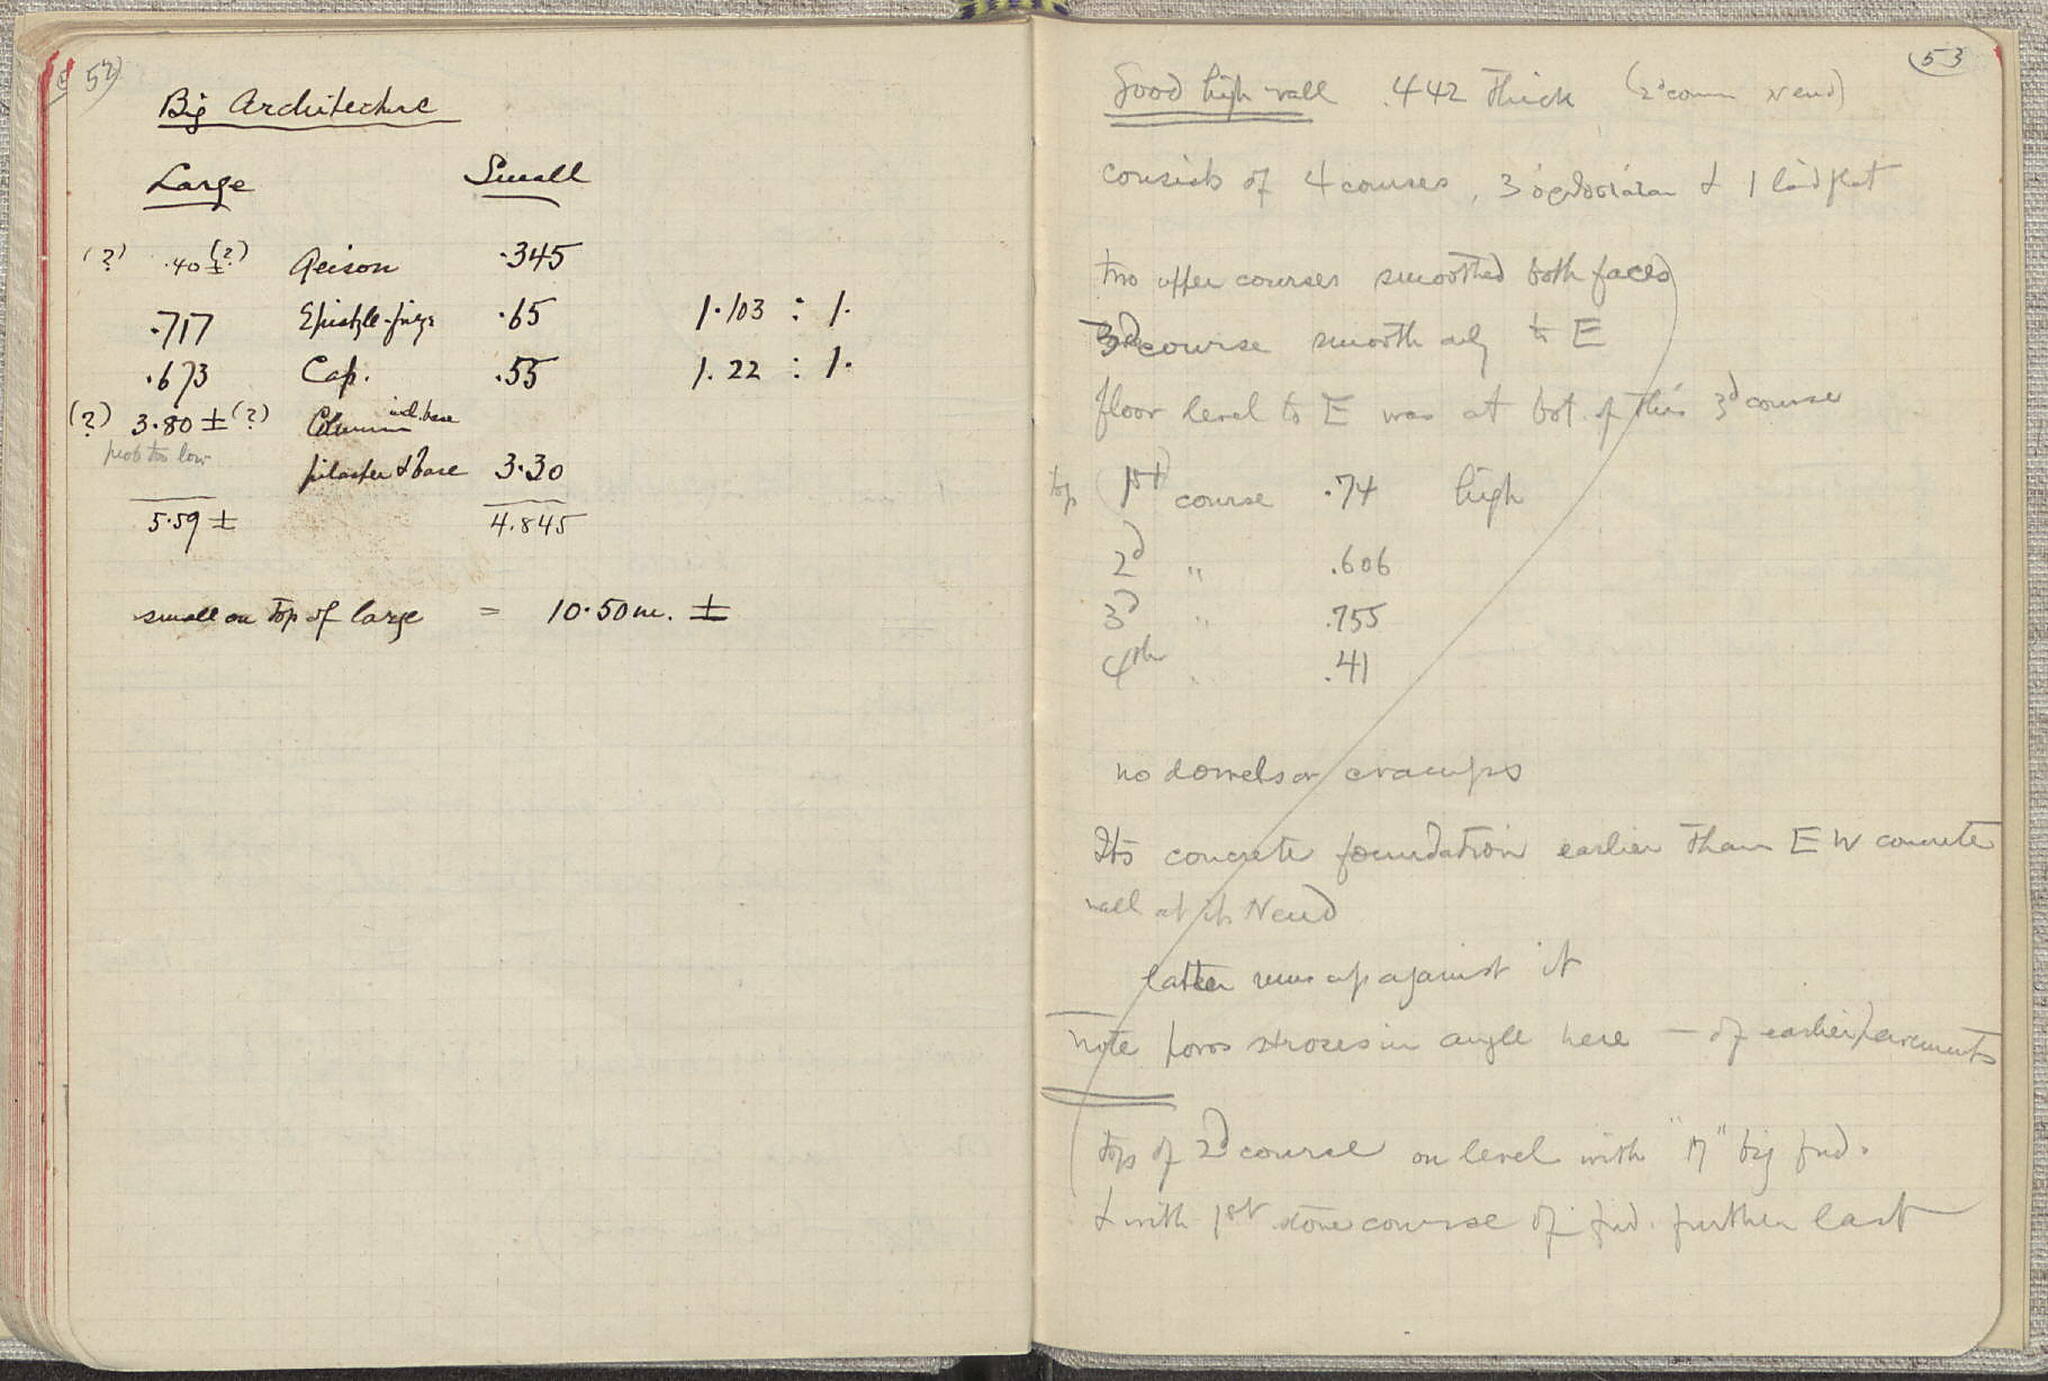 52
Big Architecture
Large Small
(?) .40 ± (?) Geison .345
.717 Epistyle-frieze .65 1.103 : 1.
.673 Cap. .55 1.22 : 1.
(?) 3.80 ± (?) Column incl. base
prob too low
pilaster & base 3.30
5.59 ± 4.845
small on top of large = 10.50 m. ±
53
Good high wall .442 thick (2d course N end)
consists of 4 courses, 3 & 1 laid flat
two upper courses smoothed both faces
3d course smooth only to E
floor level to E was at bot. of this 3d course
top 1st course .74 high
2d " .606
3d " .755
4th " .41
no dowels or cramps
Its concrete foundation earlier than E W concrete
wall at its N end
latter runs up against it
note poros in angle here — of earlier pavements
top of 2d course on level with " " big fnd.
& with 1st stone course of fnd. further East